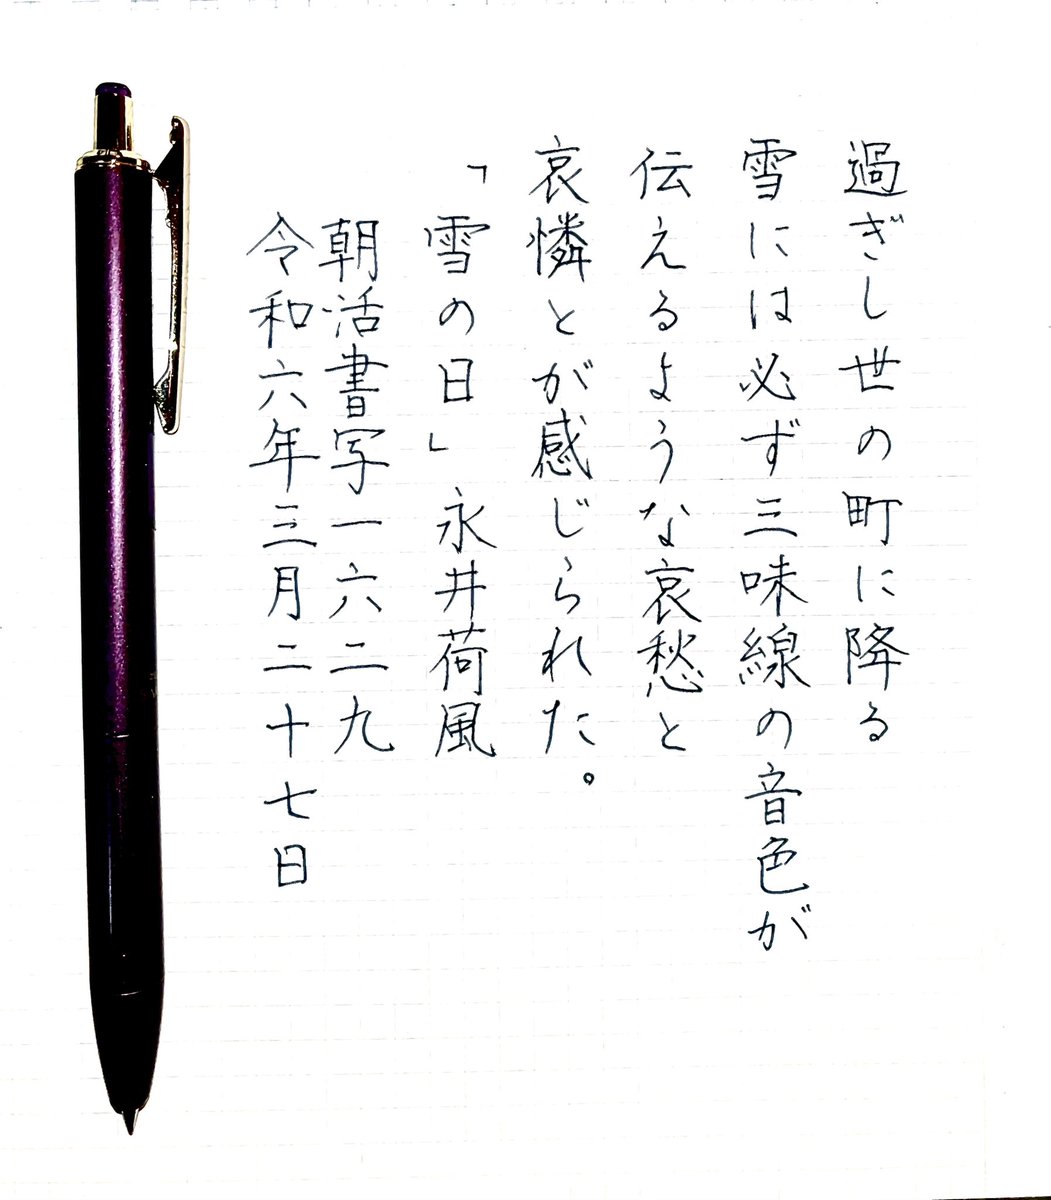 過ぎし世の町に降る
雪には必ず三味線の音色が
伝えるような哀愁と
哀憐とが感じられた。
「雪の日」永井荷風
朝活書写一六二九
令和六年三月二十七日